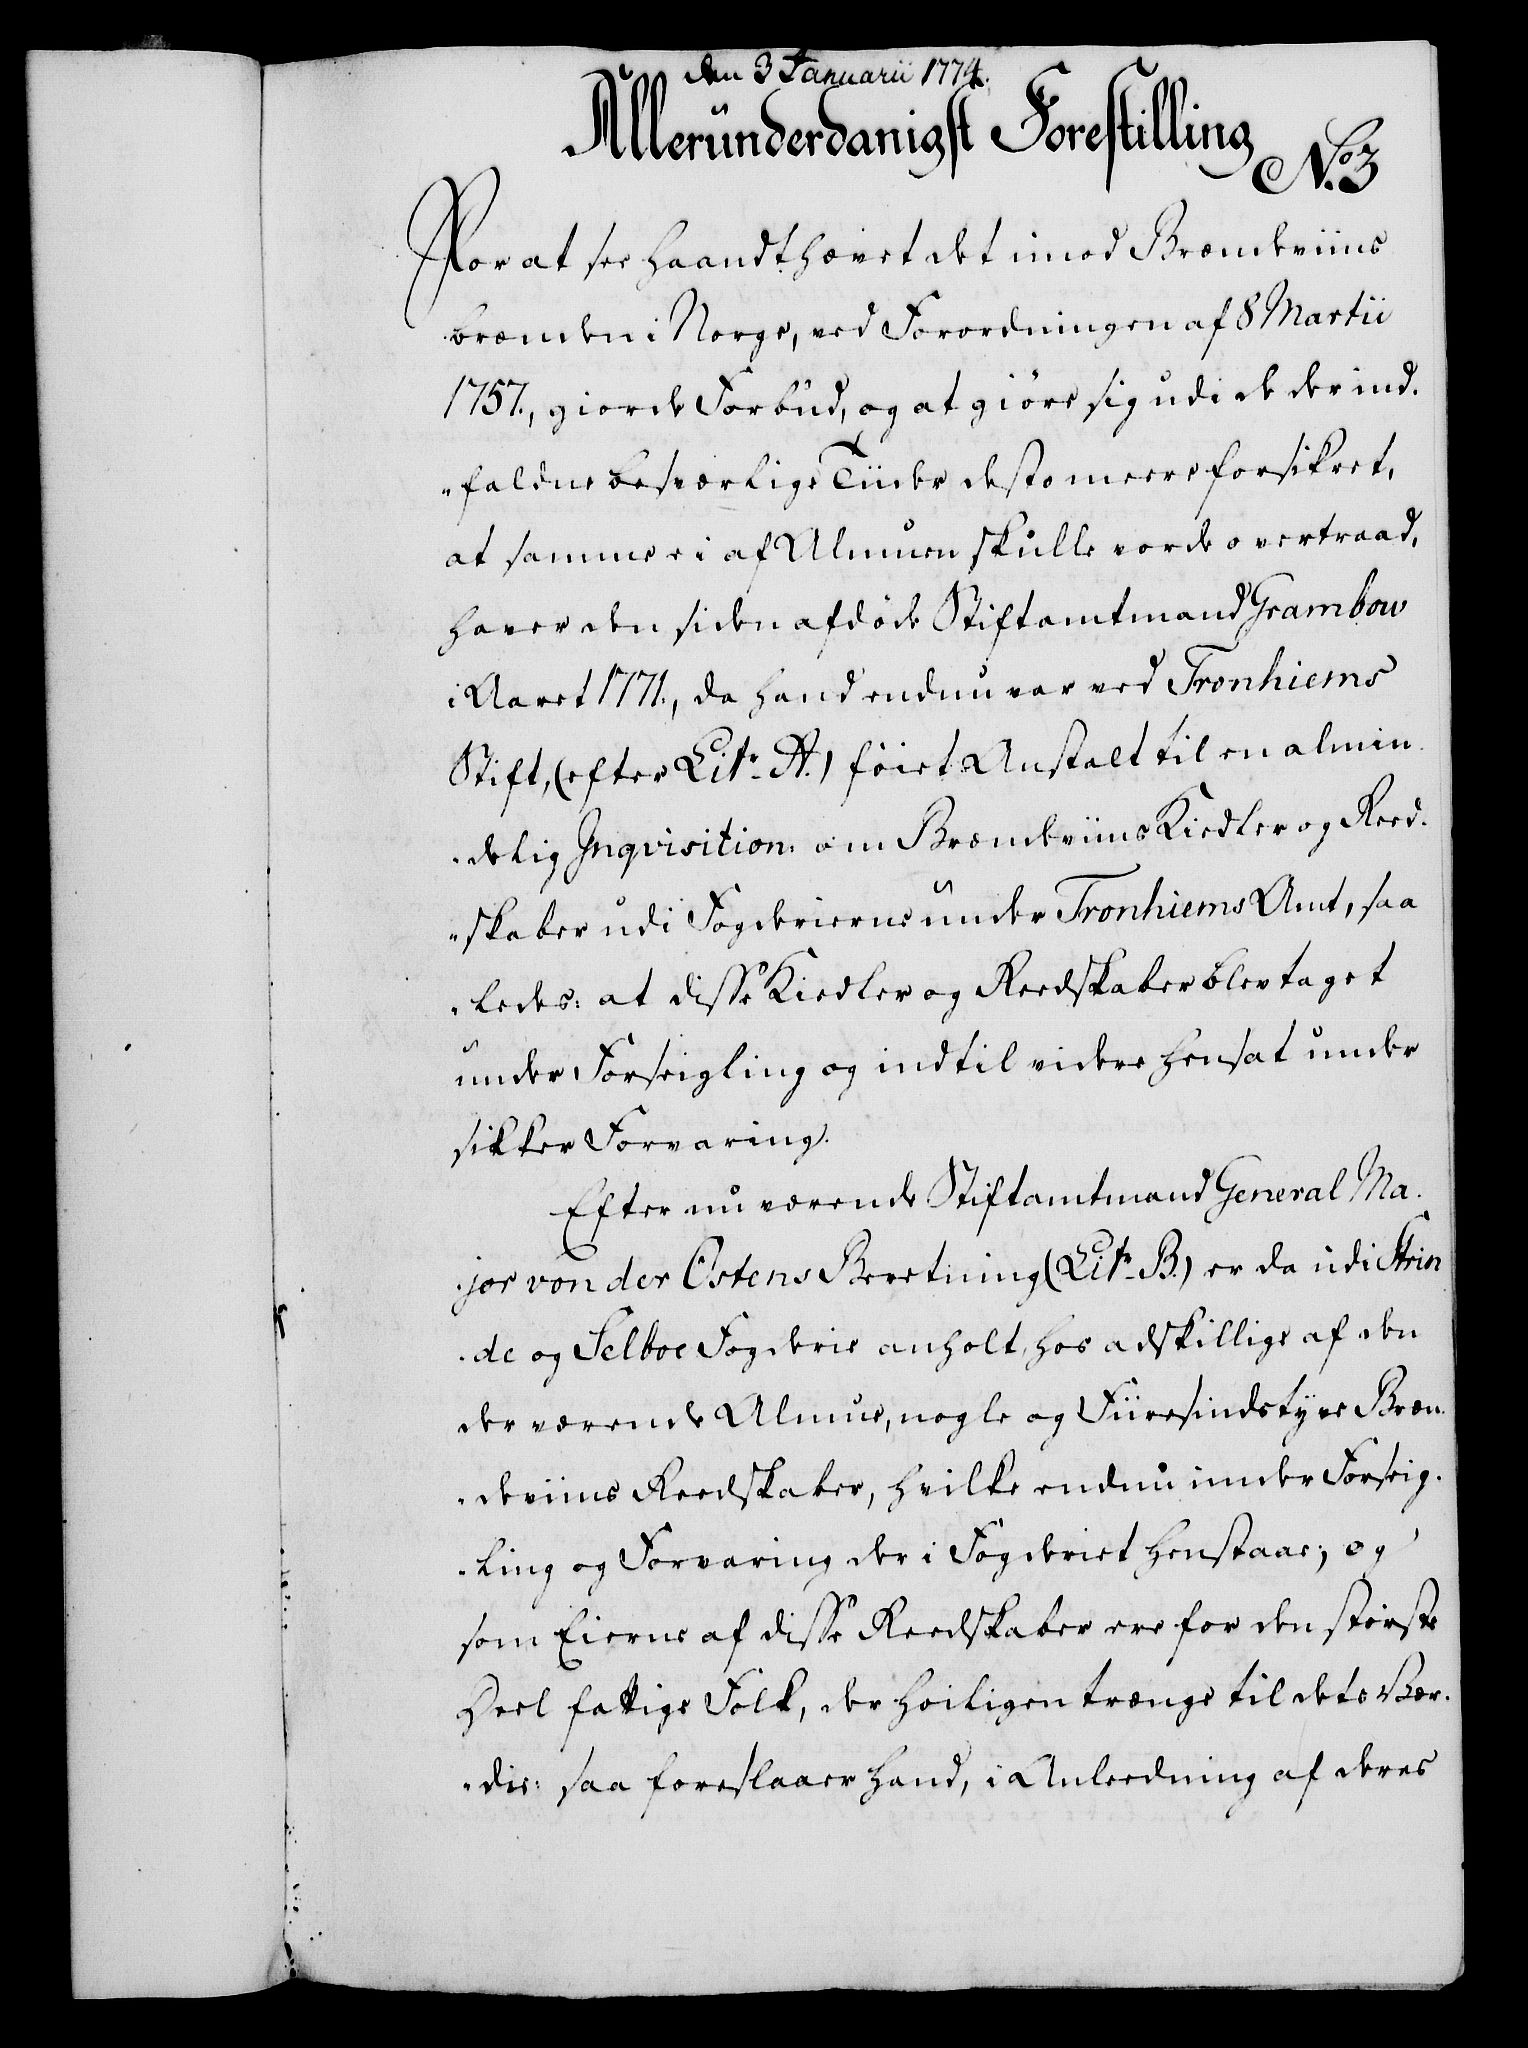 den 3 Januarii 1774.
Allerunderdanigst Forestilling
No. 3
For at see haandthævet det imod Brændeviins
brænden i Norge, ved Forordningen af 8 Martii
1757., giorde Forbud, og at giøre sig udi de der ind.
„faldne besværlige Tiider desto meere forsikret,
at samme ei af Almuen skulle vorde overtraad,
haver den siden afdøde Stiftamtmand Grambow
i Aaret 1771., da hand endnu var ved Tronhiems
Stift, (efter Litr. A.) føiet Anstalt til en almin
„delig Inqvisition. om Brændeviins Kiedler og Reed.
„skaber udi Fogderierne under Tronhiems Amt, saa
„ledes: at disse Kiedler og Reedskaber blev taget
under Forseigling og indtil videre hensat under
sikker Forvaring.
Efter nu værende Stiftamtmand General Ma.
„jor von der Ostens Beretning (Litr. B.) er da udi Strin
„de og Selboe Fogderie anholt, hos adskillige af den
der værende Almue, nogle og Fiiresindstyve Bræn.
„deviins Reedskaber, hvilke endnu under Forseig.
„ling og Forvaring der i Fogderiet henstaae; og
som Eierne af disse Reedskaber ere for den største
Deel fattige Folk, der høiligen trænge til dets Vær.
„die: saa foreslaaer hand, i Anleedning af deres